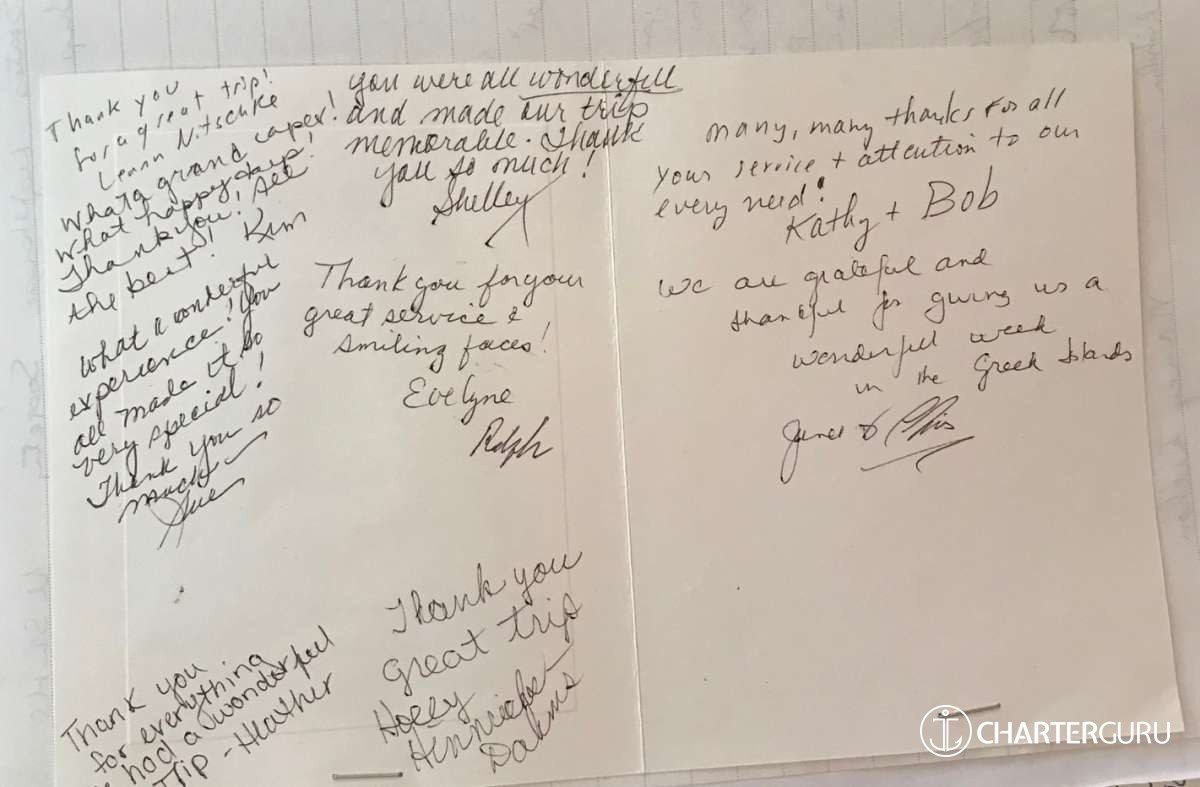 Thank you
for a great trip!
Leann Nitschke
What a grand caper!
What happy days!
Thank you! All
the best! Kim
What a wonderful
experience! You
all made it so
very special!
Thank you so
much
Sue
Thank you
for everything
had a wonderful
Trip - Heather
you were all wonderfull
and made our trip
memorable. Thank
you so much!
Shelley
Thank you for your
great service &
smiling faces!
Evelyne
Ralph
Thank you
great trip
Holly
Dakins
many, many thanks for all
your service + attention to our
every need!
Kathy + Bob
We are grateful and
thankful for giving us a
wonderful week
in the Greek Islands
&
CHARTERGURU